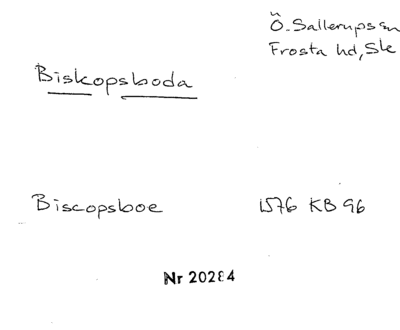 Ö. Sallerups sn
Frosta hd, Sk
Biskopsboda
Biscopsboe 1576 KB 96
Nr 20284